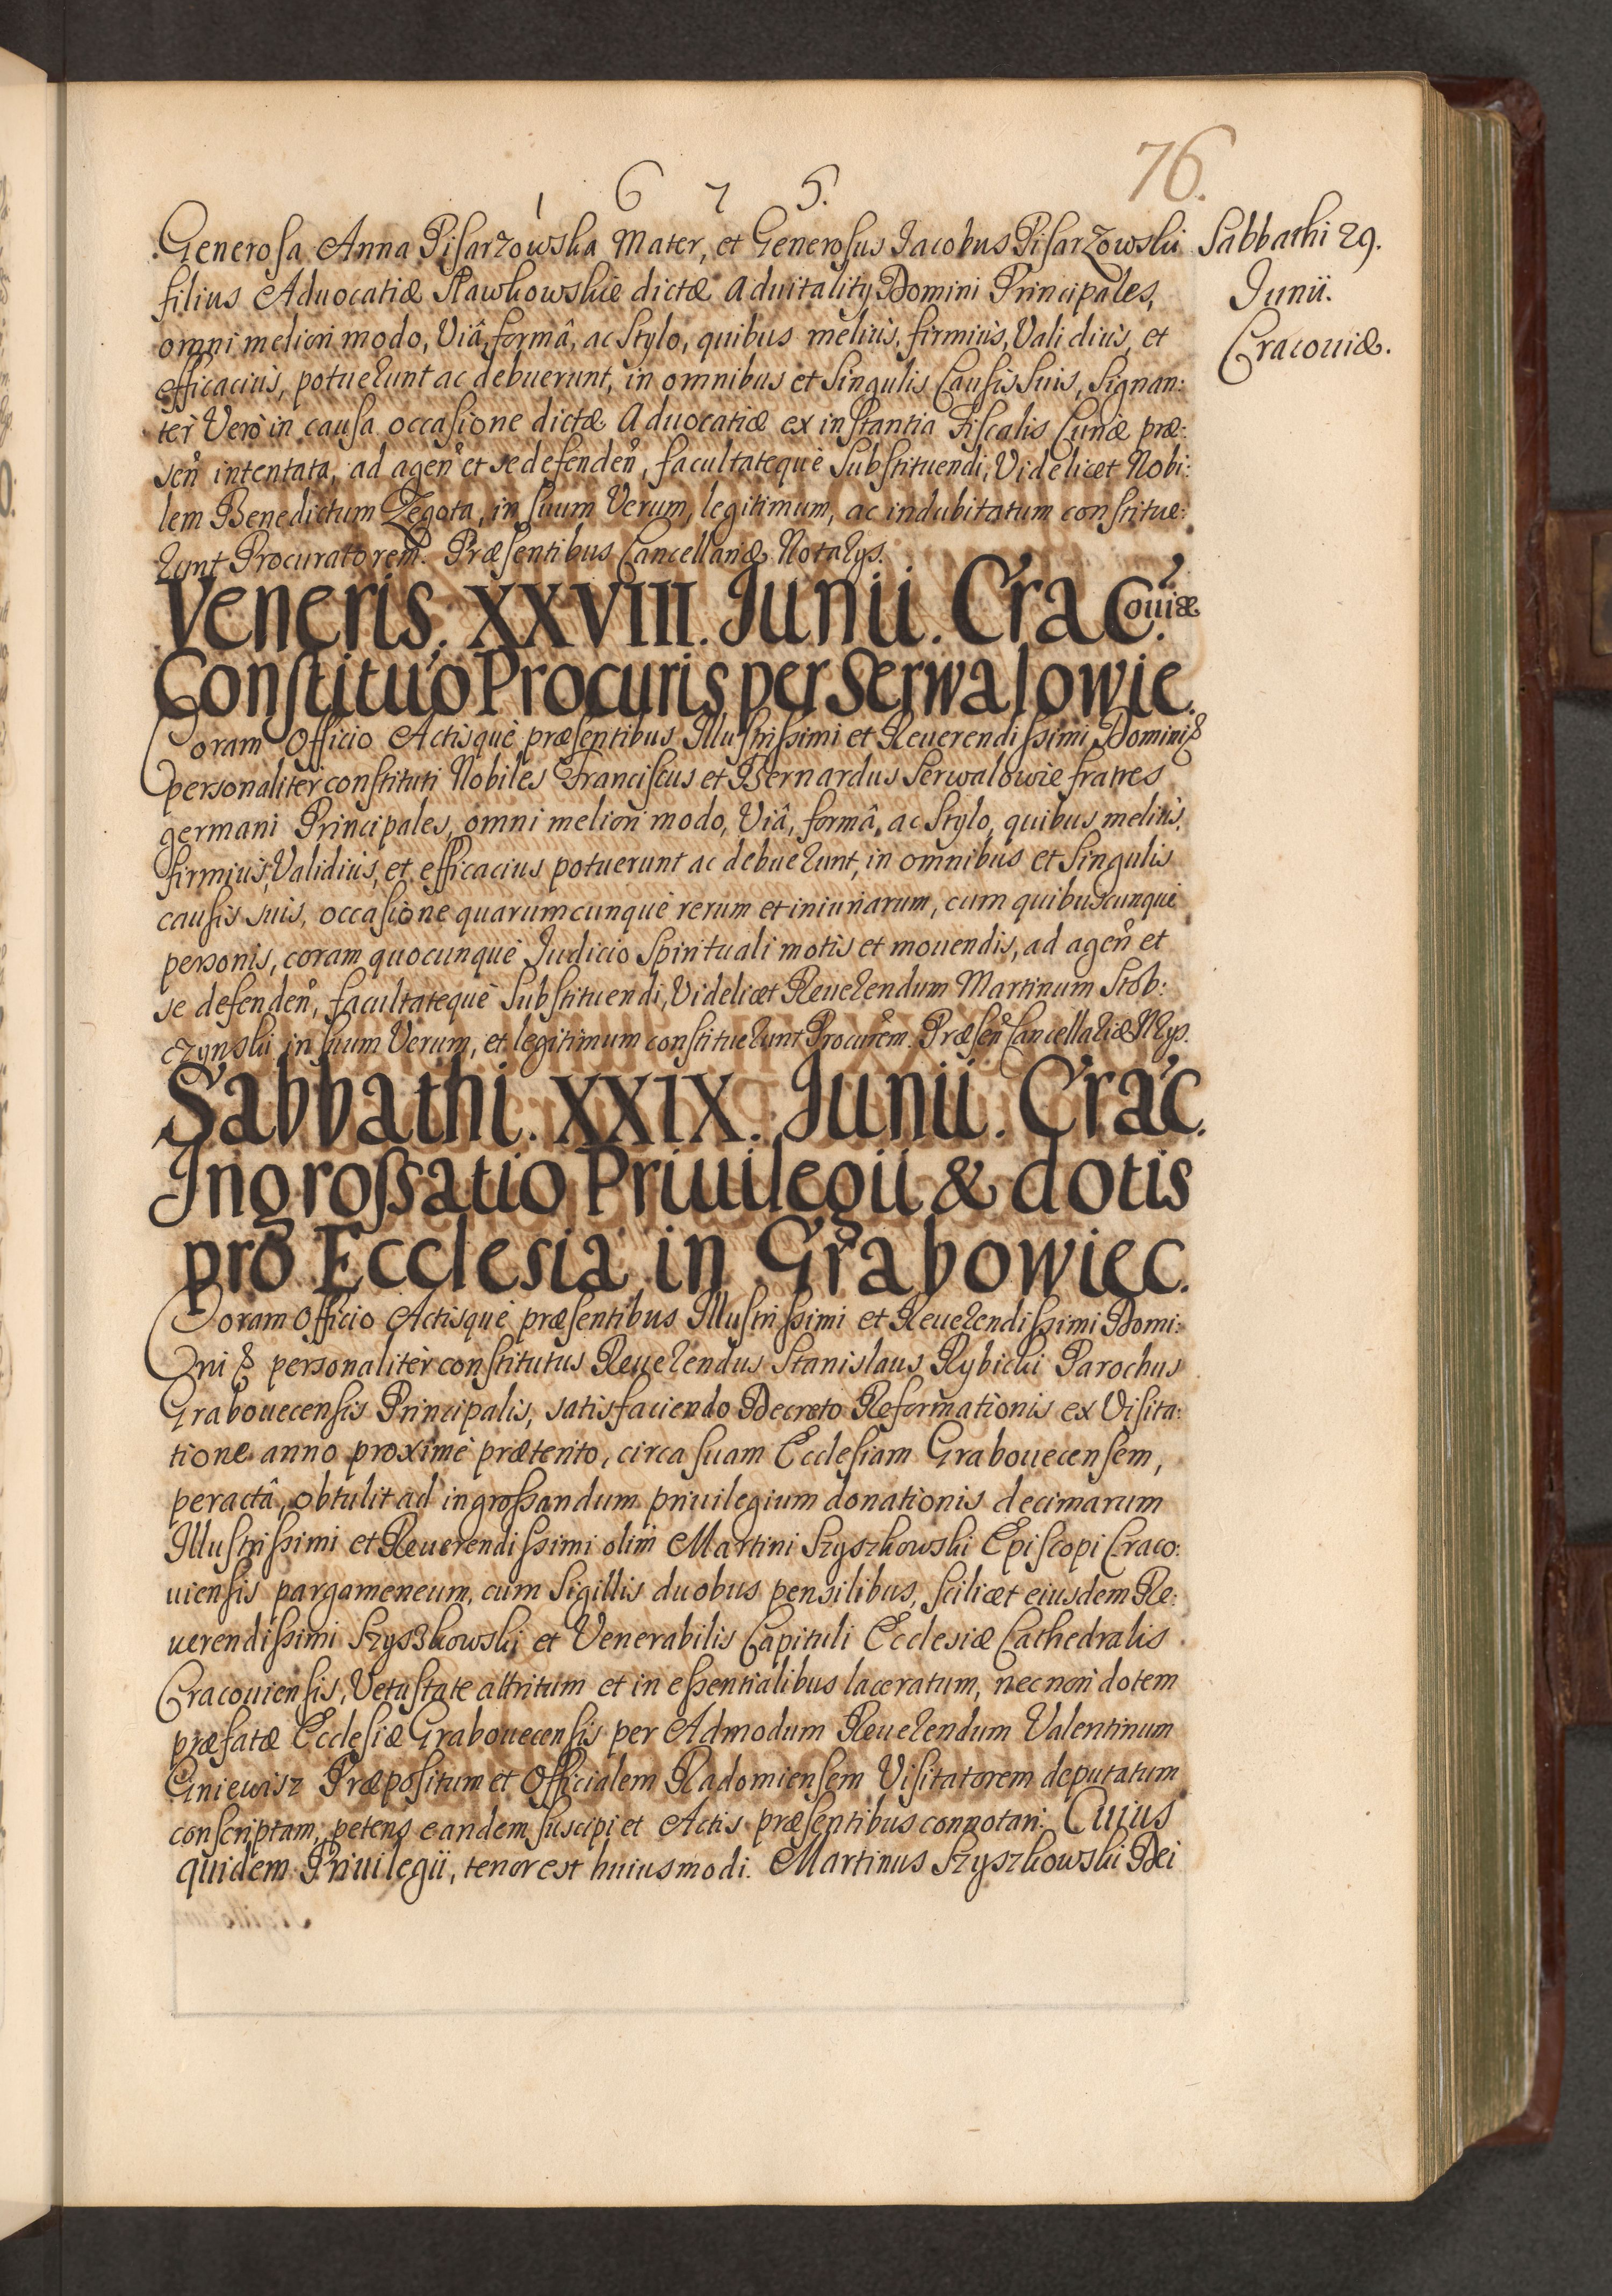 1 6 7 5.
76.
Generosa Anna Pisarzowska Mater, et Generosus Jacobus Pisarzowski
Sabbathi 29.
Junii.
Cracouiæ.
filius Aduocatiæ Sławkowskie dictæ Aduitality Domini Principales,
omni meliori modo, Viâ, formâ, ac Stylo, quibus meliùs, firmiùs, Validiùs, et
efficaciùs, potuerunt ac debuerunt, in omnibus et Singulis Causis Suis, Signan:
tèr Verò in causa occasione dictæ Aduocatiæ ex instantia Fiscalis Curiæ præ:
sen̄ intentata, ad agen̄ et se defenden̄, facultatequè Substituendi, Videlicet Nobi:
lem Benedictum Zegota, in suum Verum, legitimum, ac indubitatum constitue:
runt Procuratorem. Præsentibus Cancellariæ Notarys.
Veneris. XXVIII. Junii. Crac.ouiæ
Constituo Procuris per Serwalowie.
Coram Officio Actisquè præsentibus Illustrissimi et Reuerendissimi Domini &
personalitèr constituti Nobiles Franciscus et Bernardus Serwalowie fratres
germani Principales, omni meliori modo, Viâ, formâ, ac Stylo, quibus meliùs,
firmiùs, Validiùs, et efficacius potuerunt ac debuerunt, in omnibus et Singulis
causis suis, occasione quarumcunquè rerum et iniuriarum, cum quibuscunquè
personis, coram quocunquè Judicio Spirituali motis et mouendis, ad agen̄ et
se defenden̄, facultatequè Substituendi, Videlicet Reuerendum Martinum Stob:
czynski in suum Verum, et legitimum constituerunt Procurem. Præsen̄ Cancellariæ Nrys.
Sabbathi. XXIX. Junii. Crac.
Ingrossatio Priuilegii & dotis
pro Ecclesia in Grabowiec.
Coram Officio Actisquè præsentibus Illustrissimi et Reuerendissimi Domi:
ni & personalitèr constitutus Reuerendus Stanislaus Rybicki Parochus
Grabouecensis Principalis, satisfaciendo Decreto Reformationis ex Visita:
tione anno proximè præterito, circa suam Ecclesiam Grabouecensem,
peractâ, obtulit ad ingrossandum priuilegium donationis decimarum
Illustrissimi et Reuerendissimi olim Martini Szyszkowski Episcopi Craco:
uiensis pargameneum, cum Sigillis duobus pensilibus, scilicet eiusdem Re:
uerendissimi Szyszkowski et Venerabilis Capituli Ecclesiæ Cathedralis
Cracouiensis, Vetustate attritum et in essentialibus laceratum, nec non dotem
præfatæ Ecclesiæ Grabouecensis per Admodum Reuerendum Valentinum
Gniewisz Præpositum et Officialem Radomiensem Visitatorem deputatum
conscriptam, petens eandem suscipi et Actis præsentibus connotari. Cuius
quidem Priuilegii, tenor est huiusmodi. Martinus Szyszkowski Dei